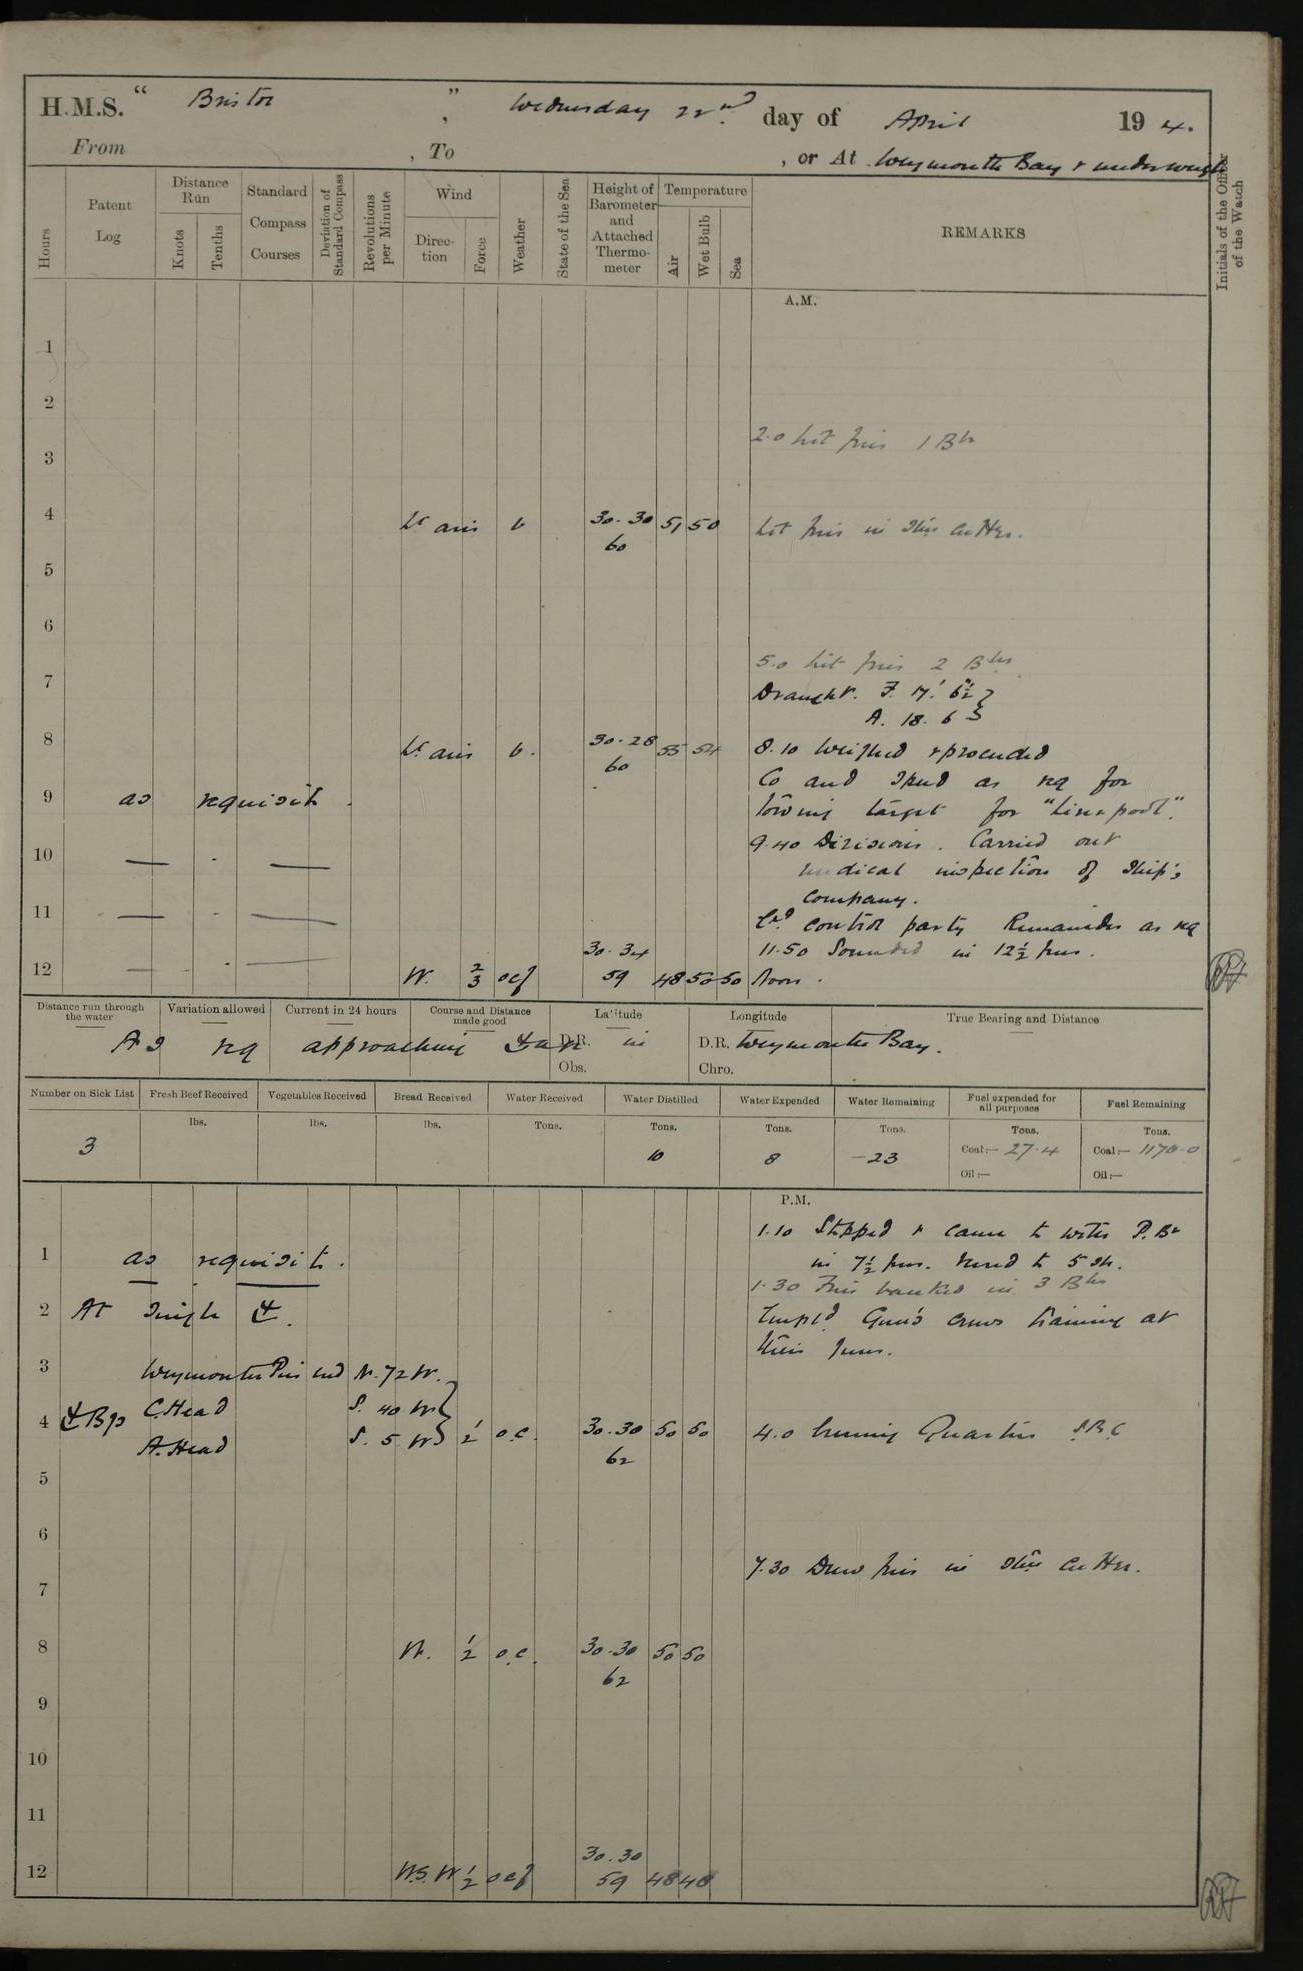 H.M.S. " Bristol ", Wednesday 22nd. day of April 19 4.
From , To , or At Weymouth Bay & underweigh
Hours
Patent Log
Distance Run
Knots
Tenths
Standard Compass Courses
Deviation of Standard Compass
Revolutions per Minute
Wind
Direction
Force
Weather
State of the Sea
Height of Barometer and Attached Thermometer
Temperature
Air
Wet Bulb
Sea
REMARKS
Initials of the Officer of the Watch
A.M.
1
2
2.0 lit fires 1 Blr
3
4 Lt airs b 30.30 51 50 Lit fires in Stm Cutter.
60
5
6
5.0 lit fires 2 Blrs
7 Draught. F. 17' 6½"
A. 18. 6
8 Lt airs b. 30.28 55 54 8.10 Weighed & proceeded
60
Co and Speed as req for
9 as requisite. towing target for "Liverpool".
9.40 Divisions. Carried out
10 — - — medical inspection of Ship's
company.
11 — - — Cd. control party Remainder as req
30.34 11.50 Sounded in 12½ fms.
12 — - — W. 2/3 ocf 59 48 50 50 Noon.
Distance run through the water
Variation allowed
Current in 24 hours
Course and Distance made good
Latitude
Longitude
True Bearing and Distance
D.R. D.R.
As req approaching in Weymouth Bay.
Obs. Chro.
Number on Sick List
Fresh Beef Received
Vegetables Received
Bread Received
Water Received
Water Distilled
Water Expended
Water Remaining
Fuel expended for all purposes
Fuel Remaining
lbs. lbs. lbs. Tons. Tons. Tons. Tons. Tons. Tons.
3 10 8 23 Coal:— 27.4 Coal:— 1170.0
Oil:— Oil:—
P.M.
1.10 Stopped & came to with P. Br
1 as requisite. in 7½ fms. Veered to 5 sh.
1.30 Fires banked in 3 Blrs
2 At Single
Empld Gun's crews training at
their guns.
3 Weymouth Pier end N. 72 W.
C. Head S. 40 W
4 Bgs 1/2 o.c. 30.30 50 50 4.0 Evening Quarters S.B.C
A. Head S. 5 W
62
5
6
7.30 Drew fires in Stm Cutter.
7
8 W. 1/2 o.c. 30.30 50 50
62
9
10
11
30.30
12 W.S.W 1/2 ocf 59 48 48